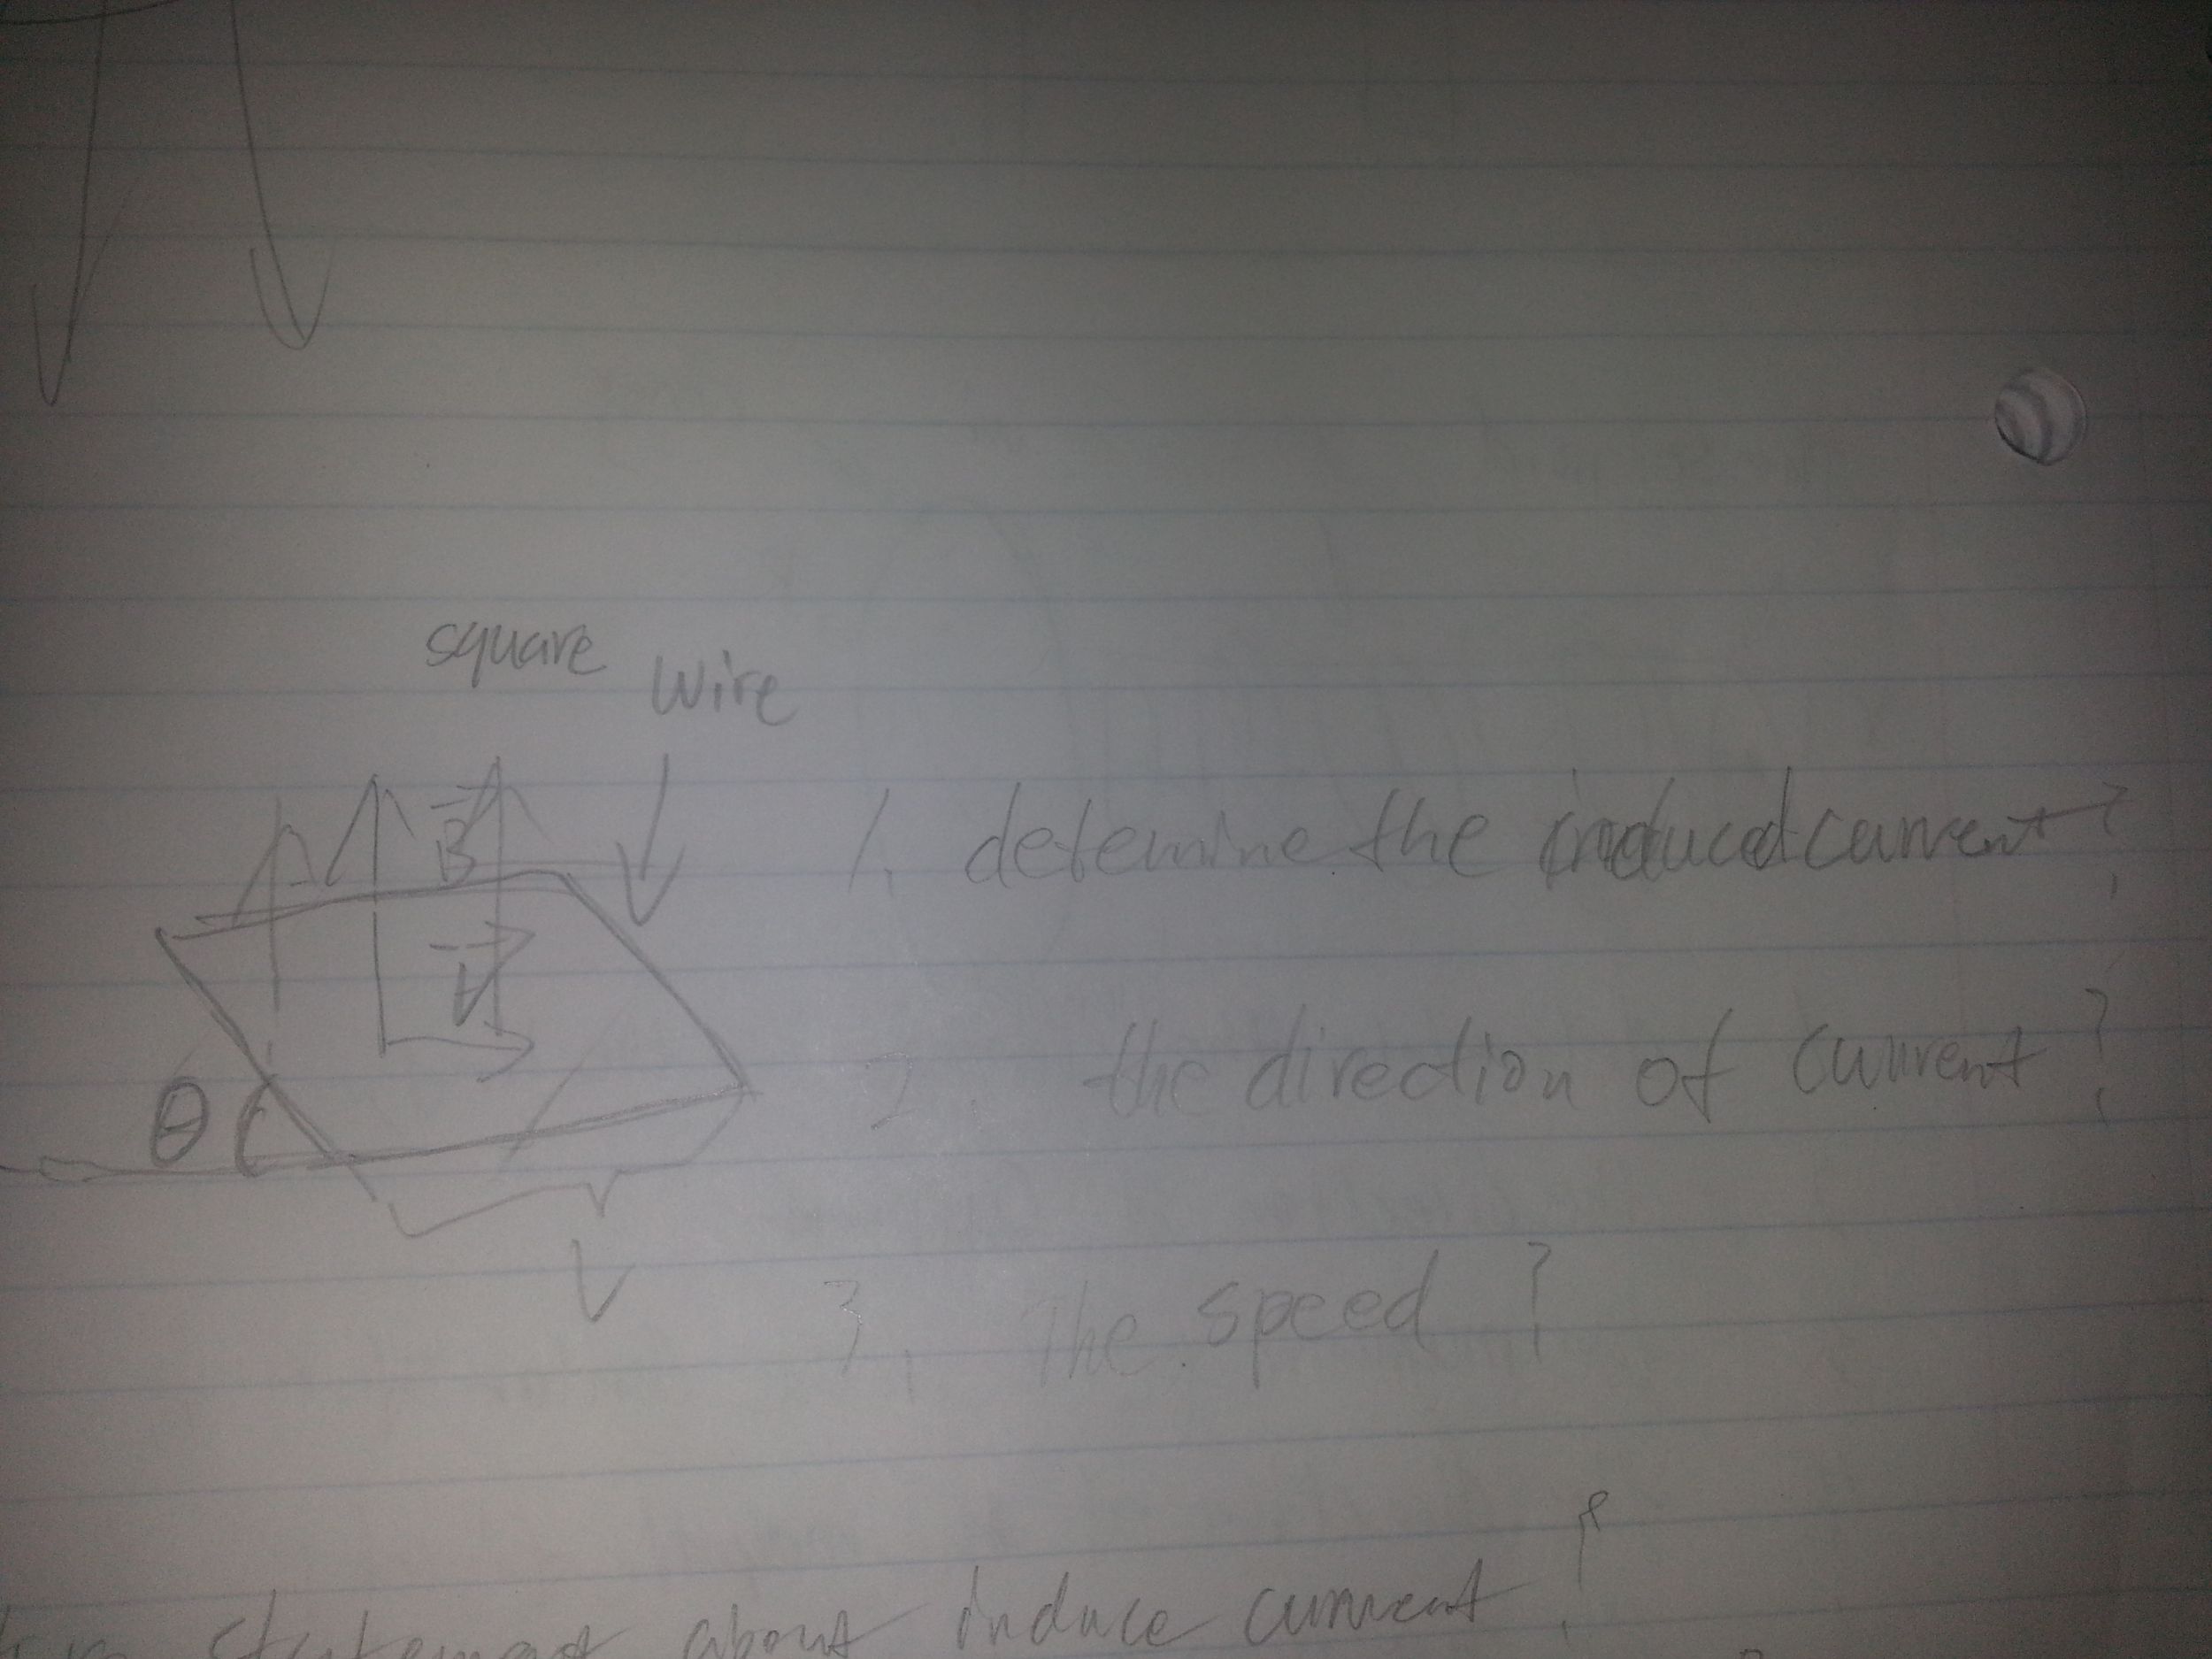 square wire
B
1. detemine the induced current?
V
2. the direction of current?
θ
V
3. The speed?
statement about induce current?